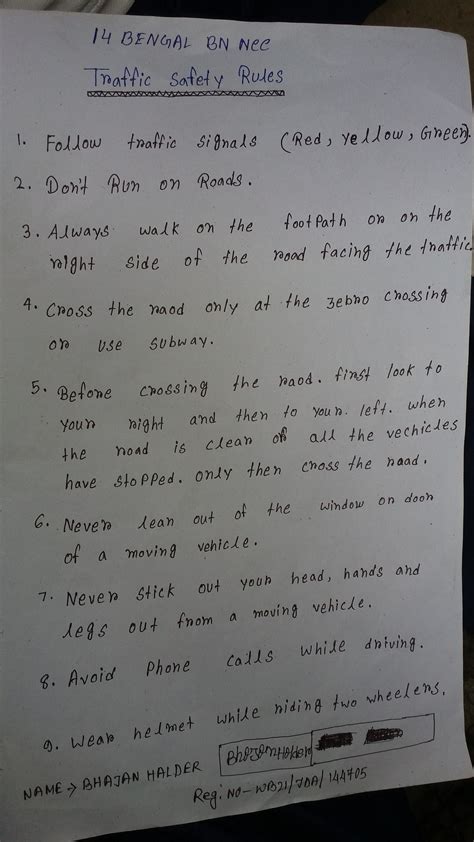 14 BENGAL BN NCC
Traffic Safety Rules
1. Follow traffic signals (Red, Yellow, Green).
2. Don't Run on Roads.
3. Always walk on the footpath or on the
right side of the road facing the traffic
4. Cross the raod only at the zebro crossing
or use subway.
5. Before crossing the raod. first look to
your right and then to your. left. when
the road is clear or all the vechicles
have stopped. only then cross the raad.
6. Never lean out of the window or door
of a moving vehicle.
7. Never stick out your head, hands and
legs out from a moving vehicle.
8. Avoid Phone calls while driving.
9. Wear helmet while riding two wheelers.
NAME → BHAJAN HALDER
Reg: NO- WB21/JDA/144705